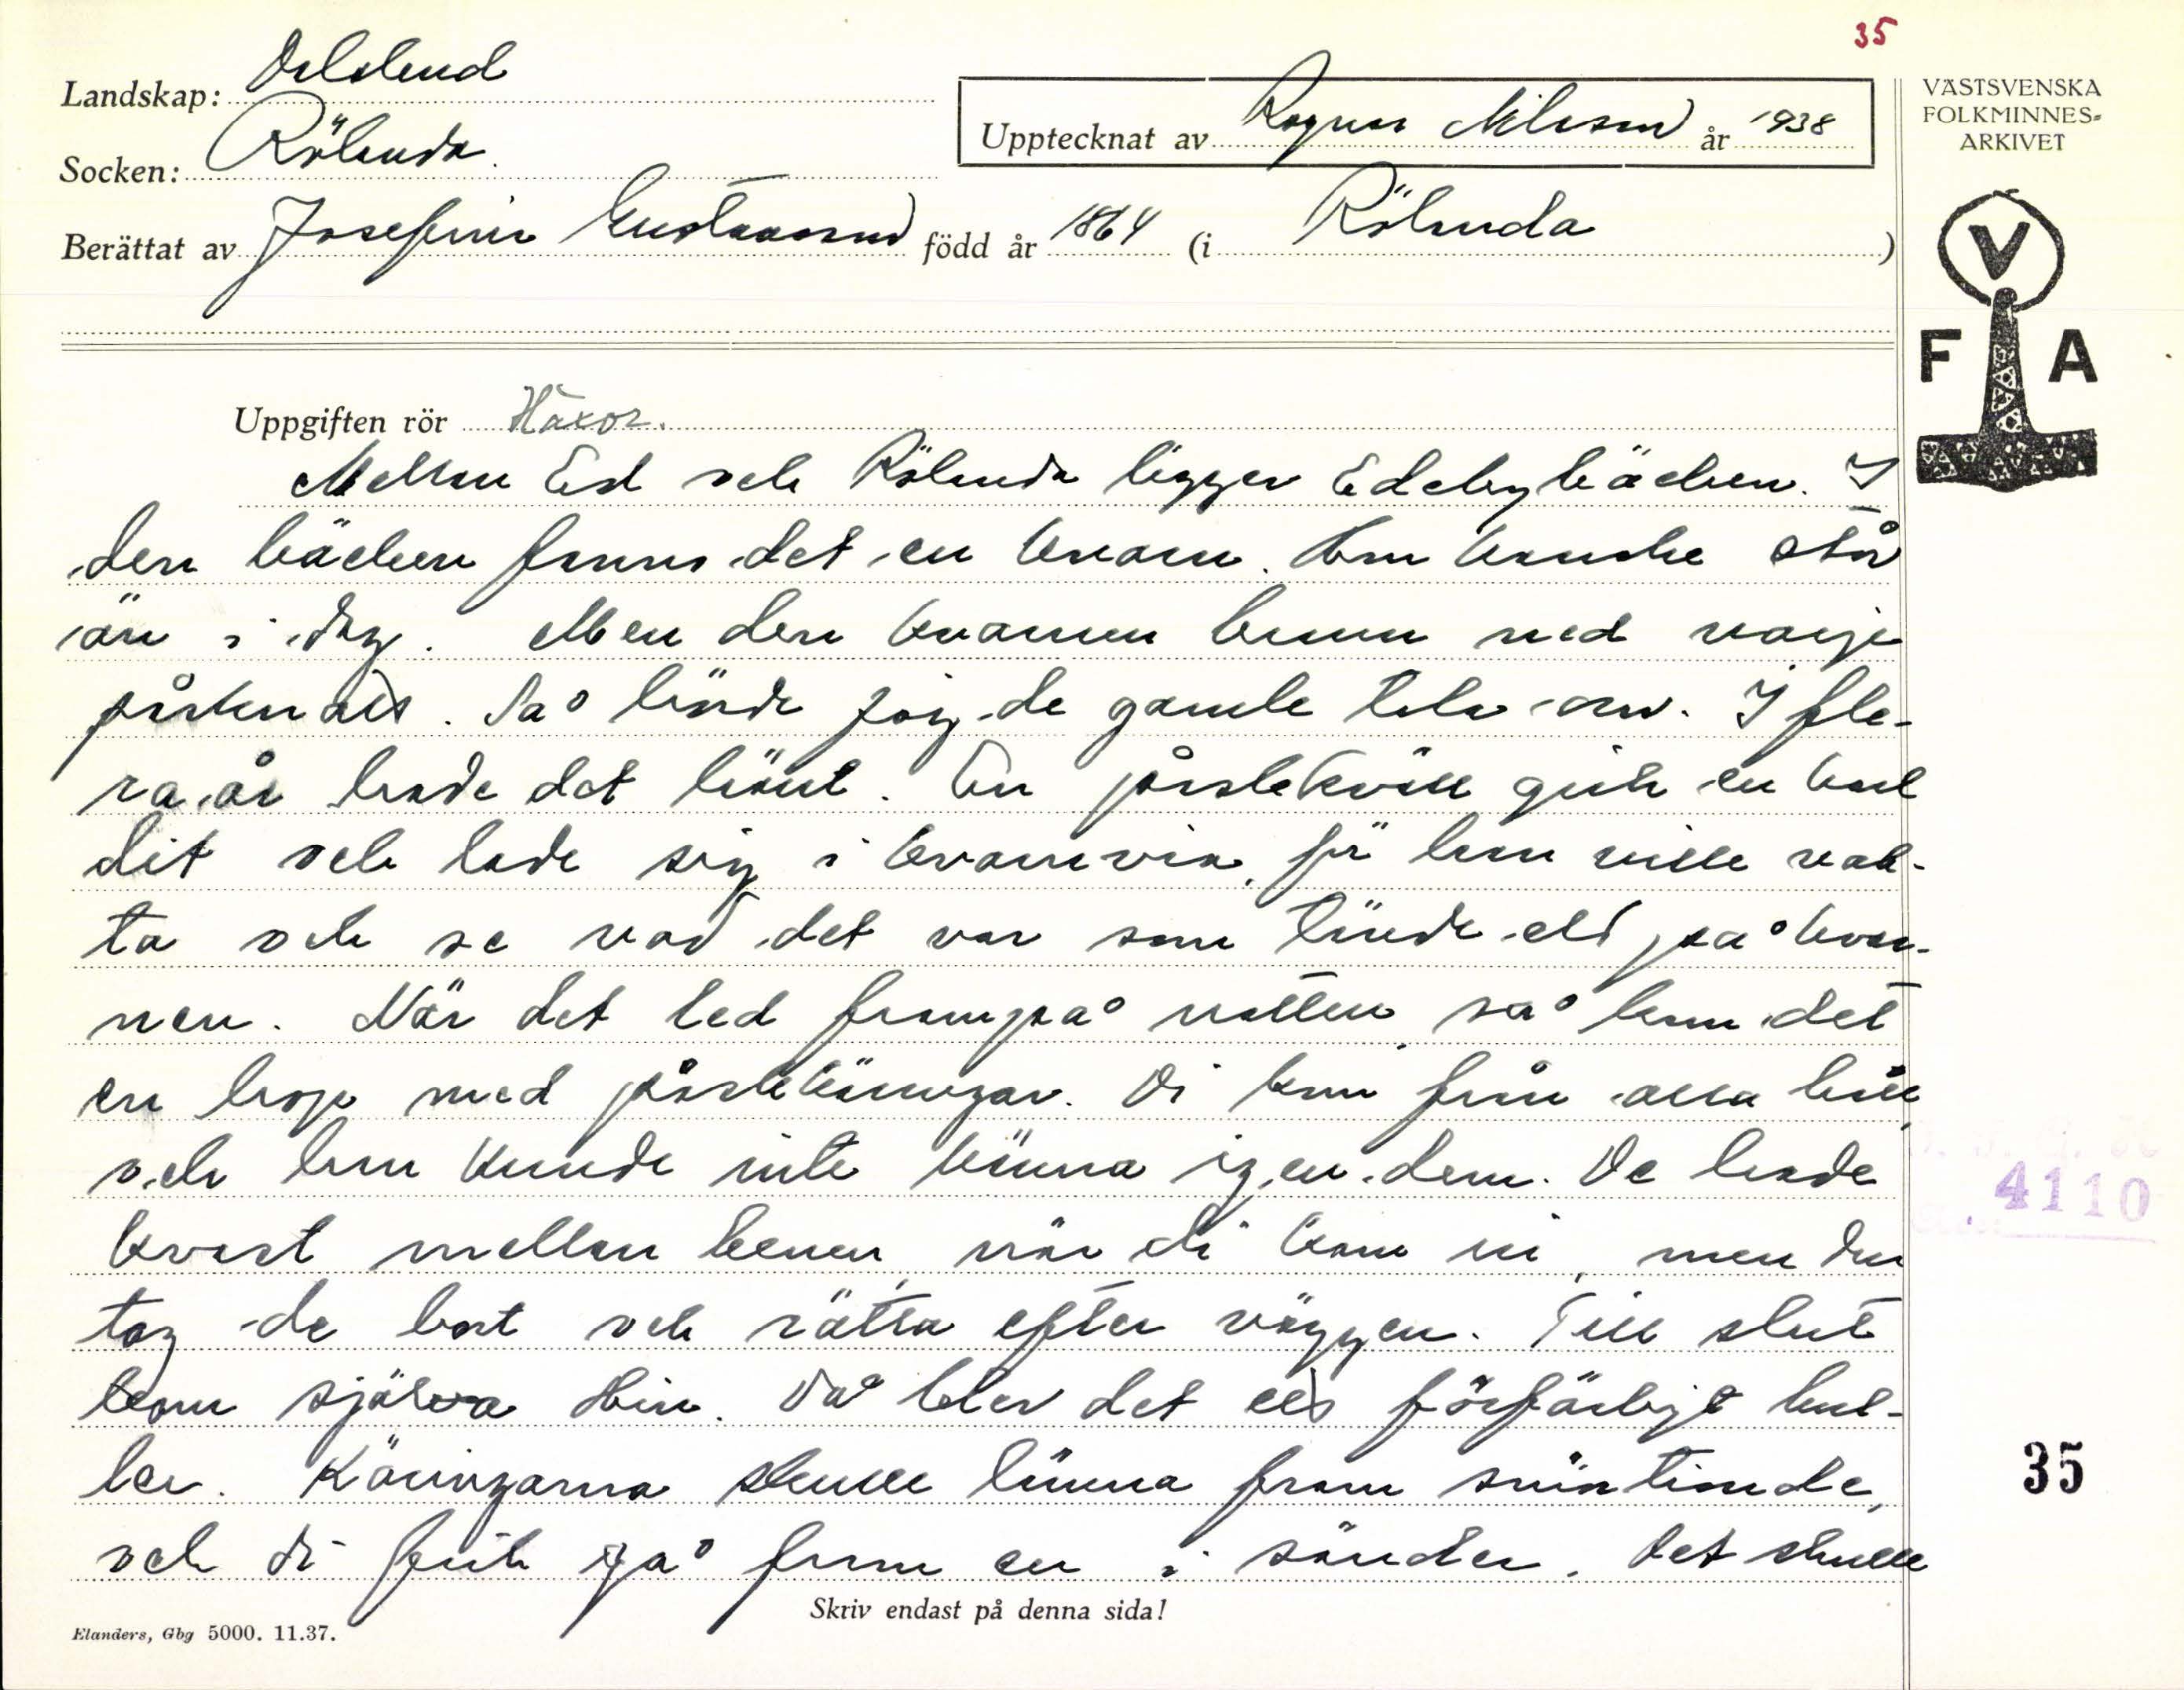 35
Landskap: Dalsland
Socken: Rölanda
Upptecknat av Ragnar Nilsson år 1938
Berättat av Josefina Gustavsson född år 1864 (i Rölanda)
VÄSTSVENSKA
FOLKMINNES=
ARKIVET
V
F A
Uppgiften rör Häxor.
Mellan Ed och Rölanda ligger Edebybäcken. I
den bäcken fanns det en kvarn. Den kanske står
än i dag. Men den kvarnen brann ned varje
påsknatt. Så hörde jag de gamle tala om. I fle-
ra år hade det hänt. En påskekväll gick en karl
dit och lade sig i kvarnen, för han ville vak-
ta och se vad det var som tände eld på kvar-
nen. När det led frampå natten, så kom det
en hop med påskkäringar. Di kom från alla håll,
och han kunde inte känna igen dem. De hade
kvast mellan benen, när di kom in, men den
tog de bort och sätta efter väggen. Till slut
kom själva Hin. Då blev det ett förfärligt bul-
ler. Käringarna skulle lämna fram smörtionde,
och di fick gå fram en i sänder. Det skulle
4110
35
Skriv endast på denna sida!
Elanders, Gbg 5000. 11.37.